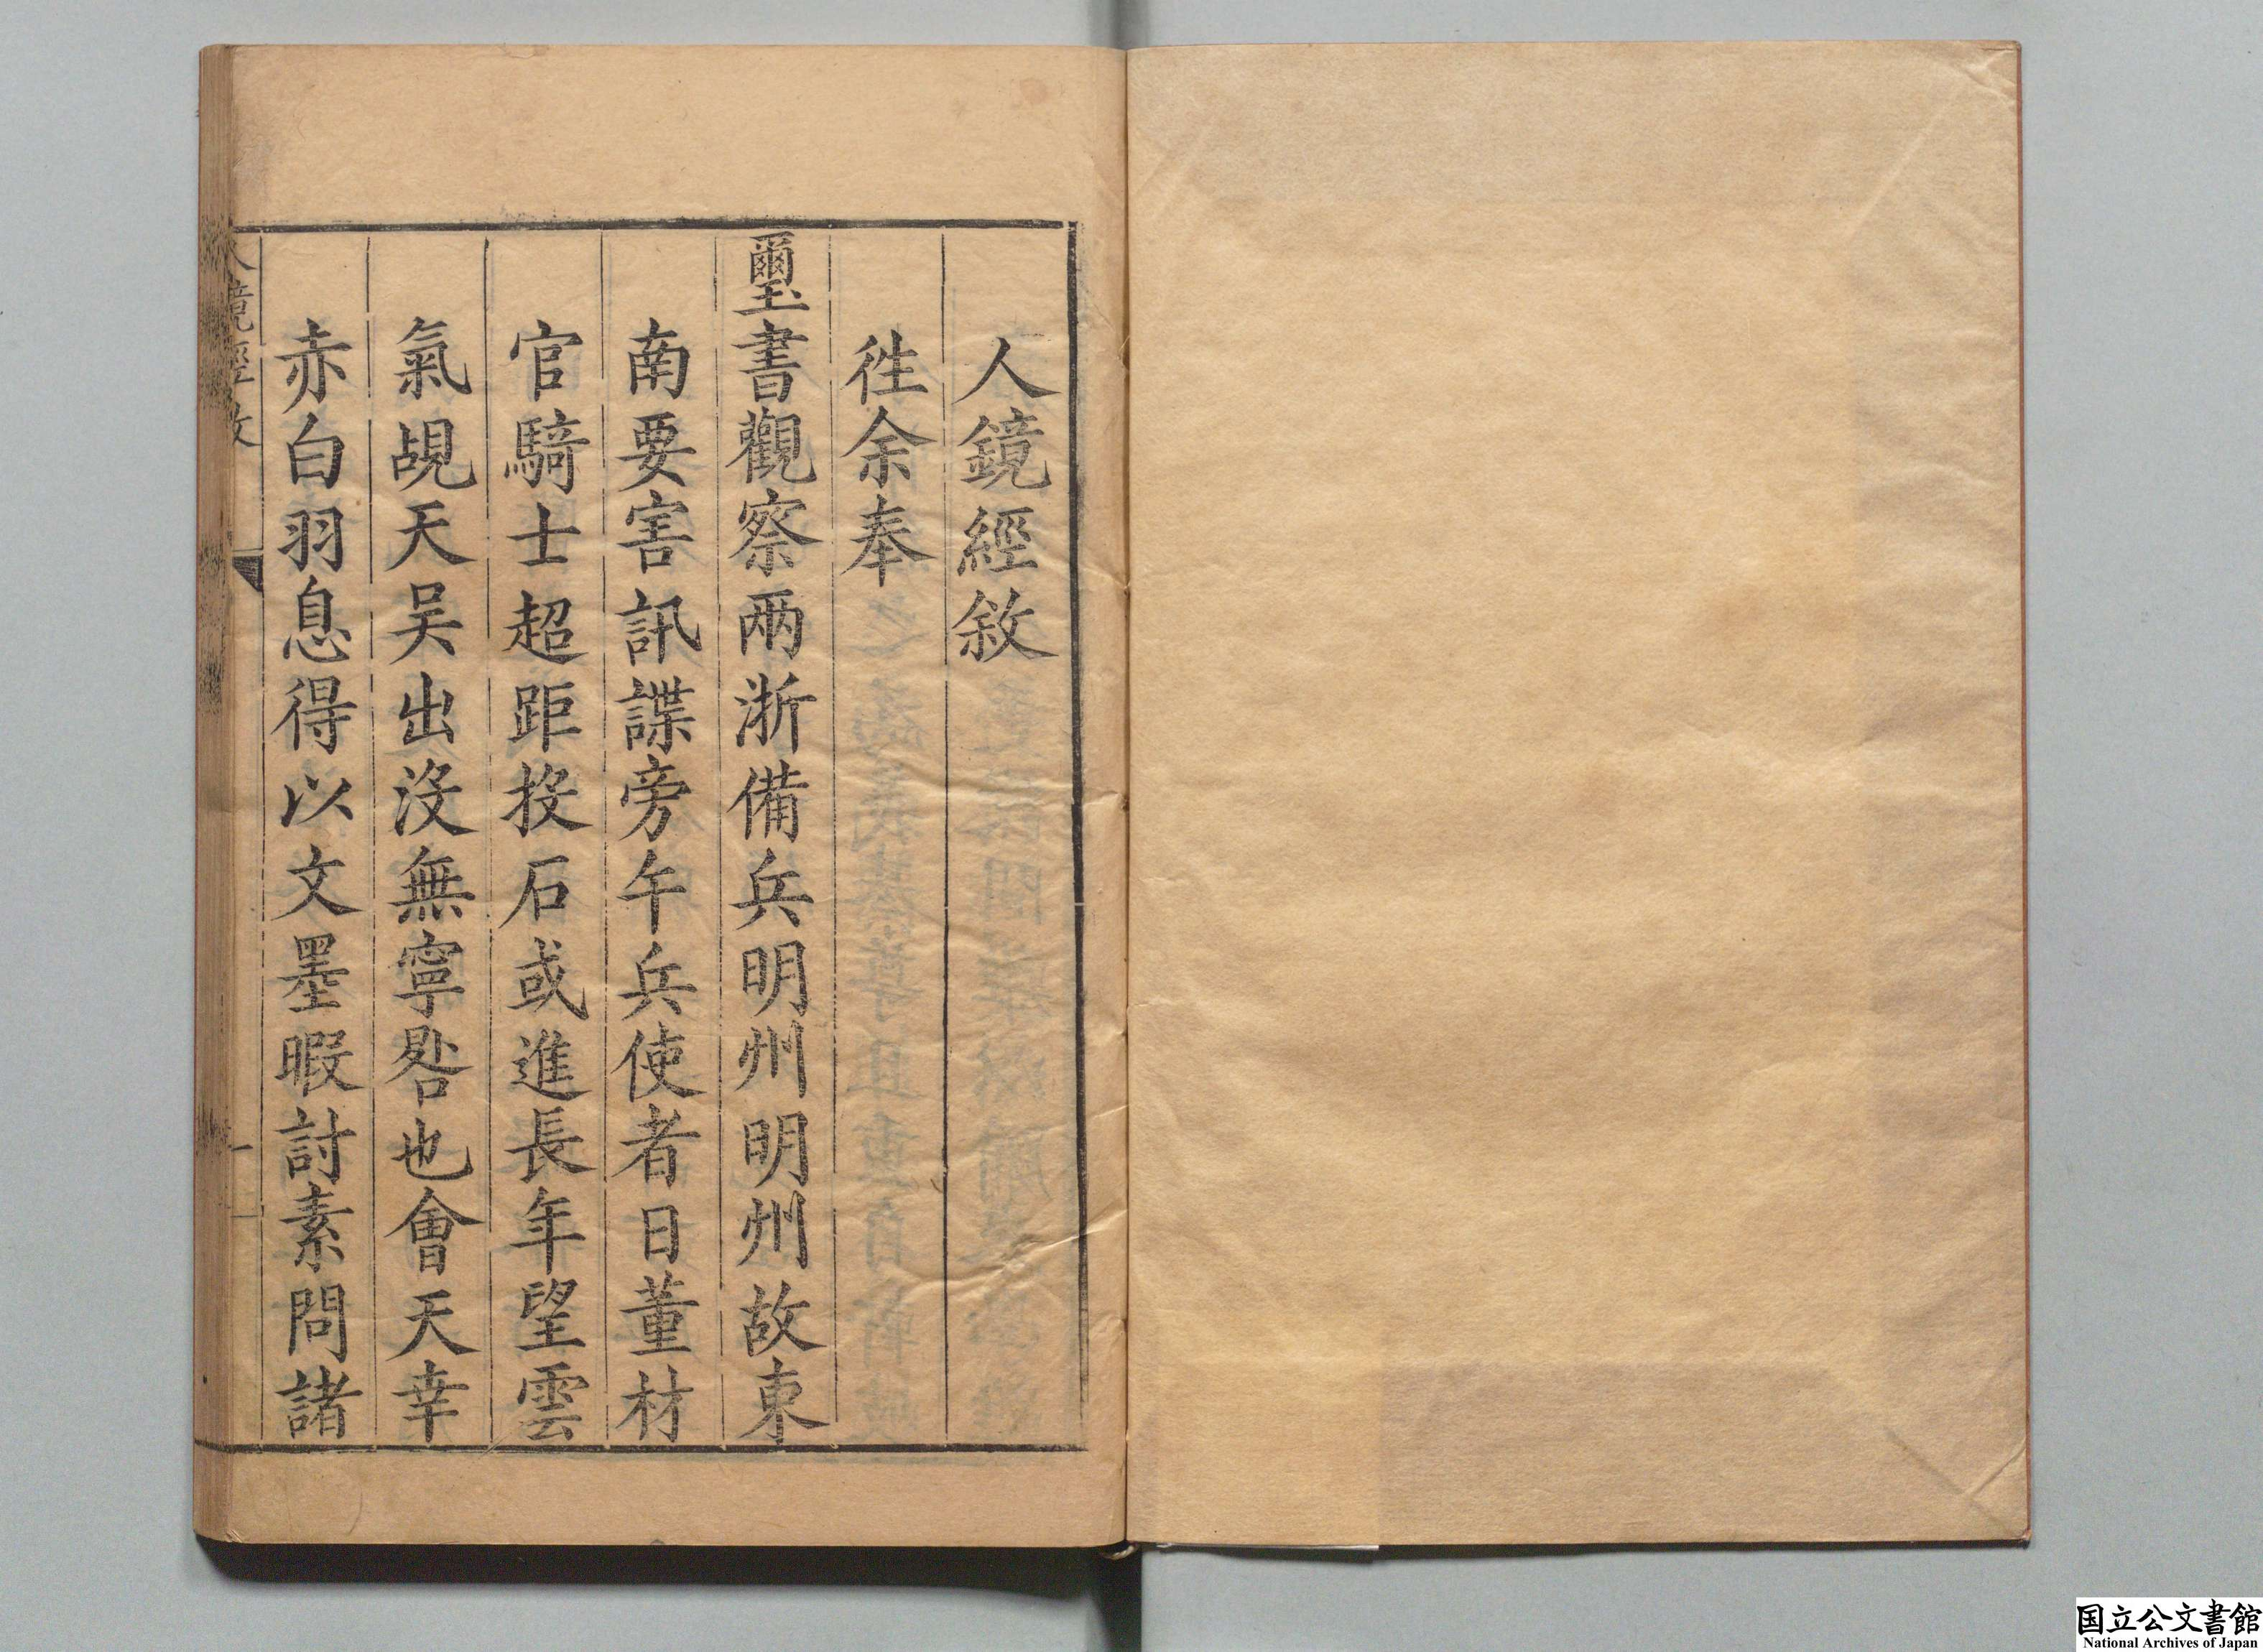 人鏡經敘
徃余奉
璽書觀察兩浙備兵明州明州故東
南要害訊諜旁午兵使者日董材
官騎士超距投石或進長年望雲
氣覘天吴出沒無寧晷也會天幸
赤白羽息得以文墨暇討素問諸
人鏡經敘
一
国立公文書館
National Archives of Japan